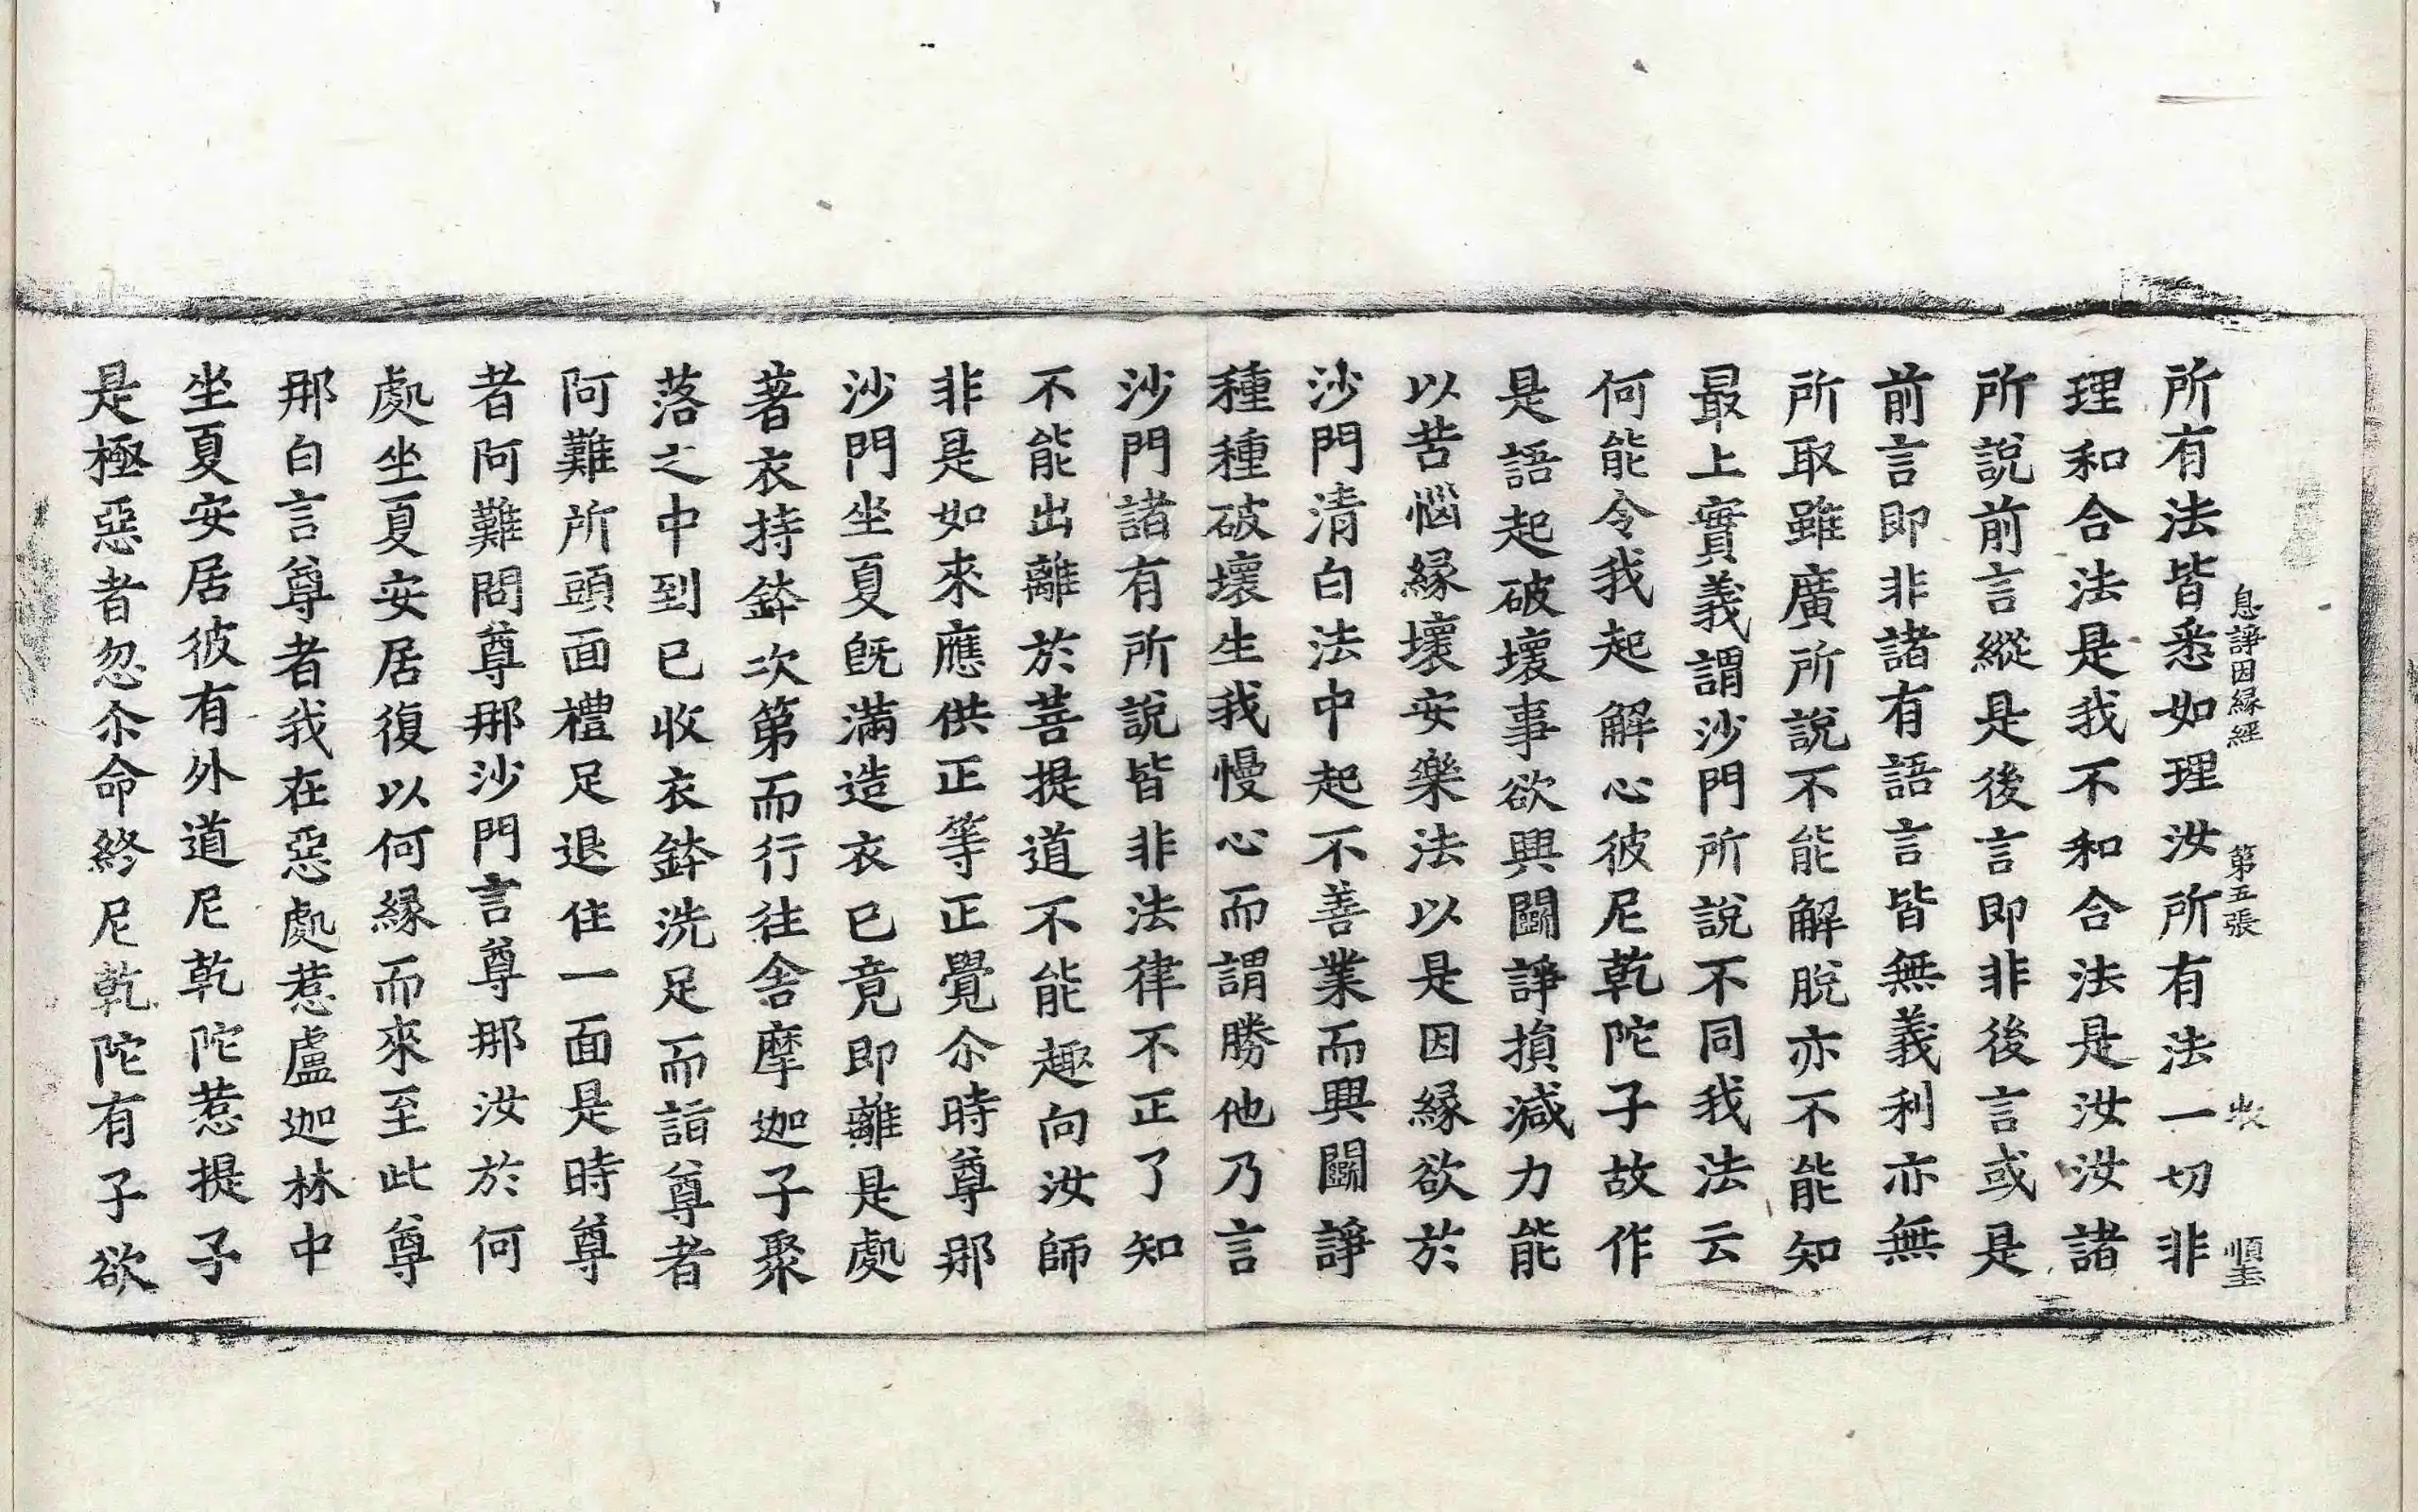 息諍因緣經 第五張 收 順王
所有法皆悉如理汝所有法一切非
理和合法是我不和合法是汝汝諸
所說前言縱是後言即非後言或是
前言即非諸有語言皆無義利亦無
所取雖廣所說不能解脫亦不能知
最上實義謂沙門所說不同我法云
何能令我起解心彼尼乾陀子故作
是語起破壞事欲興鬪諍損減力能
以苦惱緣壞安樂法以是因緣欲於
沙門清白法中起不善業而興鬪諍
種種破壞生我慢心而謂勝他乃言
沙門諸有所說皆非法律不正了知
不能出離於菩提道不能趣向汝師
非是如來應供正等正覺尒時尊那
沙門坐夏旣滿造衣已竟即離是處
著衣持鉢次第而行往舍摩迦子聚
落之中到已收衣鉢洗足而詣尊者
阿難所頭面禮足退住一面是時尊
者阿難問尊那沙門言尊那汝於何
處坐夏安居復以何緣而來至此尊
那白言尊者我在惡處惹盧迦林中
坐夏安居彼有外道尼乾陀惹提子
是極惡者忽尒命終尼乾陀有子欲